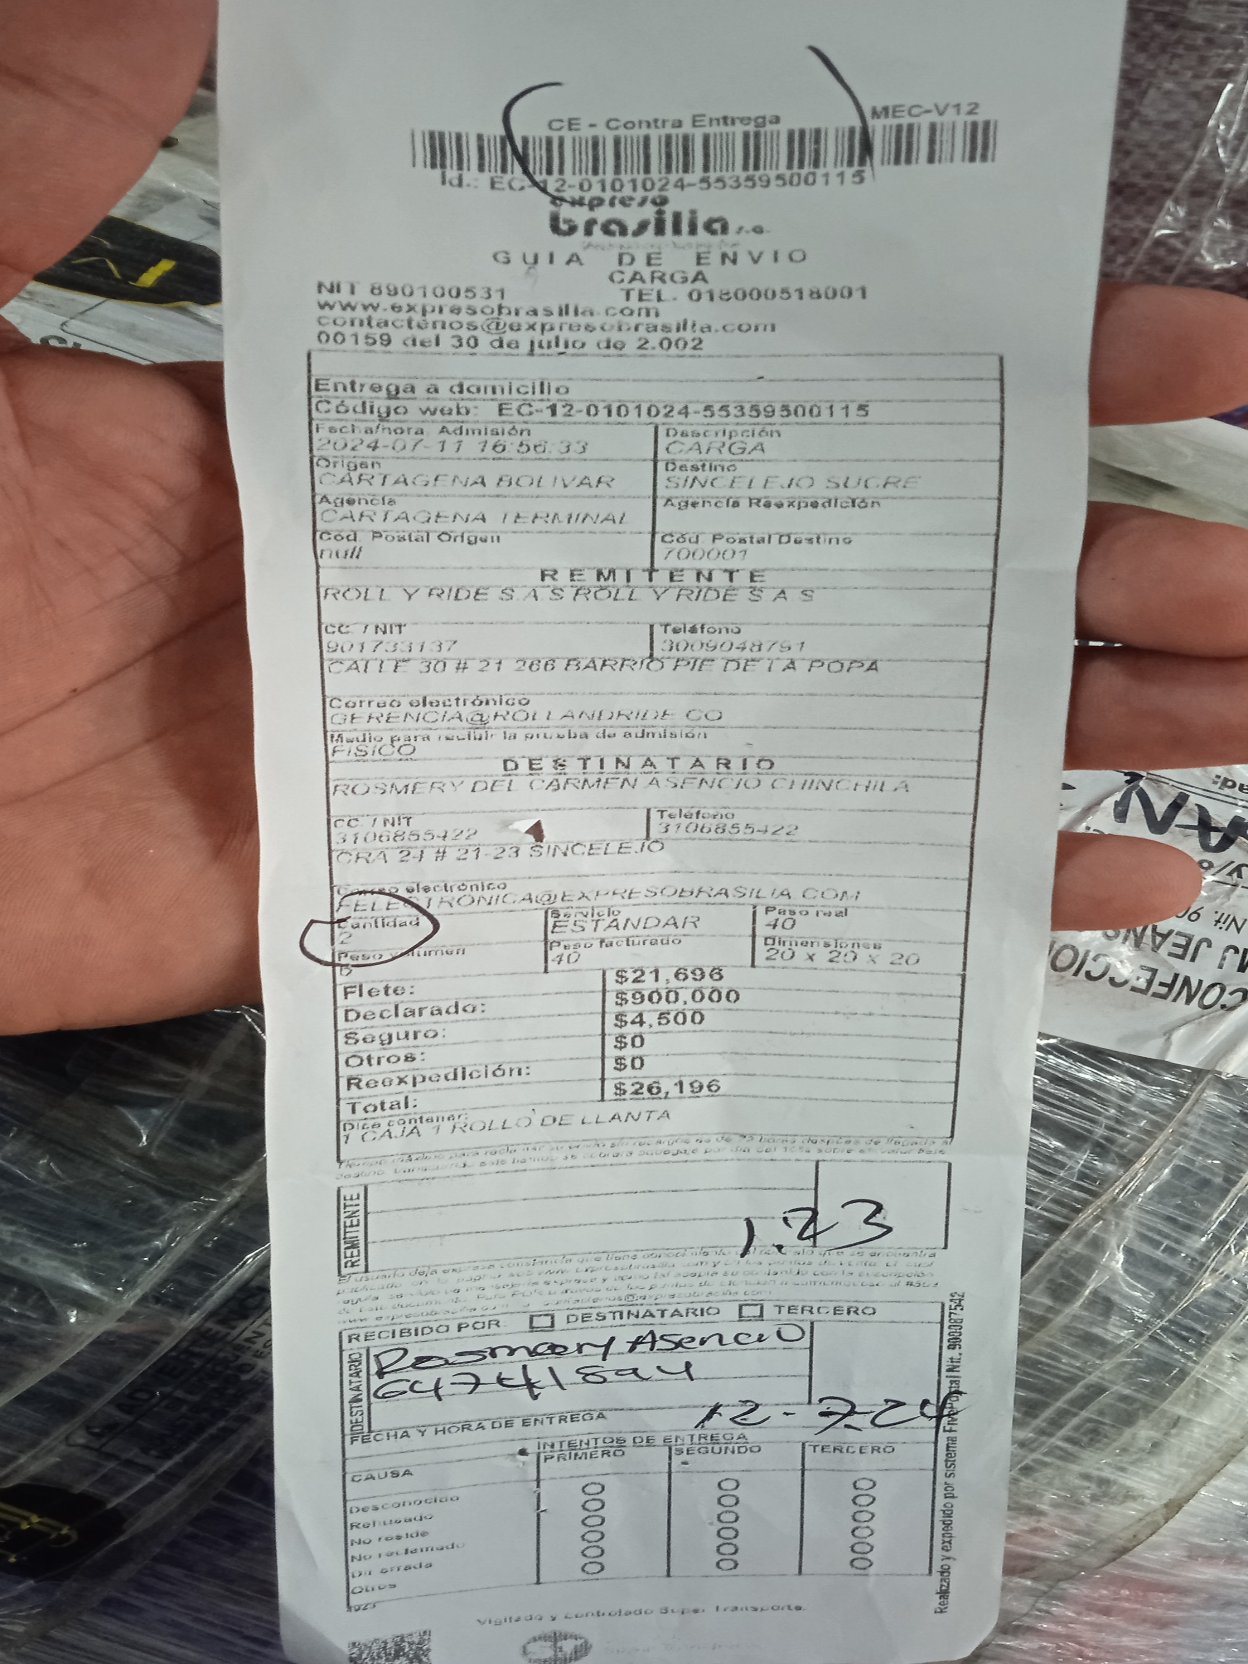 CE - Contra Entrega
MEC-V12
Id.: EC-12-0101024-55359500115
expreso
brasilia s.a.
GUIA DE ENVIO
CARGA
NIT 890100531 TEL. 018000518001
www.expresobrasilia.com
contactenos@expresobrasilia.com
00159 del 30 de julio de 2.002
Entrega a domicilio
Código web: EC-12-0101024-55359500115
Fecha/hora Admisión Descripción
2024-07-11 16:56:33 CARGA
Origen Destino
CARTAGENA BOLIVAR SINCELEJO SUCRE
Agencia Agencia Reexpedición
CARTAGENA TERMINAL
Cód. Postal Origen Cód. Postal Destino
null 700001
REMITENTE
ROLL Y RIDE S A S ROLL Y RIDE S A S
CC. / NIT Teléfono
901733137 3009048791
CALLE 30 # 21 266 BARRIO PIE DE LA POPA
Correo electrónico
GERENCIA@ROLLANDRIDE.CO
Medio para recibir la prueba de admisión
FISICO
DESTINATARIO
ROSMERY DEL CARMEN ASENCIO CHINCHILA
CC. / NIT Teléfono
3106855422 3106855422
CRA 24 # 21-23 SINCELEJO
Correo electrónico
FELECTRONICA@EXPRESOBRASILIA.COM
Cantidad Servicio Peso real
2 ESTANDAR 40
Peso volumen Peso facturado Dimensiones
40 20 x 20 x 20
Flete: $21,696
Declarado: $900,000
Seguro: $4,500
Otros: $0
Reexpedición: $0
Total: $26,196
Dice contener:
1 CAJA 1 ROLLO DE LLANTA
REMITENTE
1.23
RECIBIDO POR DESTINATARIO TERCERO
DESTINATARIO
Rosmery Asencio
64741894
FECHA Y HORA DE ENTREGA
12-7-24
INTENTOS DE ENTREGA
CAUSA PRIMERO SEGUNDO TERCERO
Desconocido
Rehusado
No reside
No reclamado
Dir errada
Otros
Vigilado y controlado Super Transporte.
Realizado y expedido por sistema FivePostal Nit. 900087542
CONFECCIO
MJ JEANS
Nit. 90